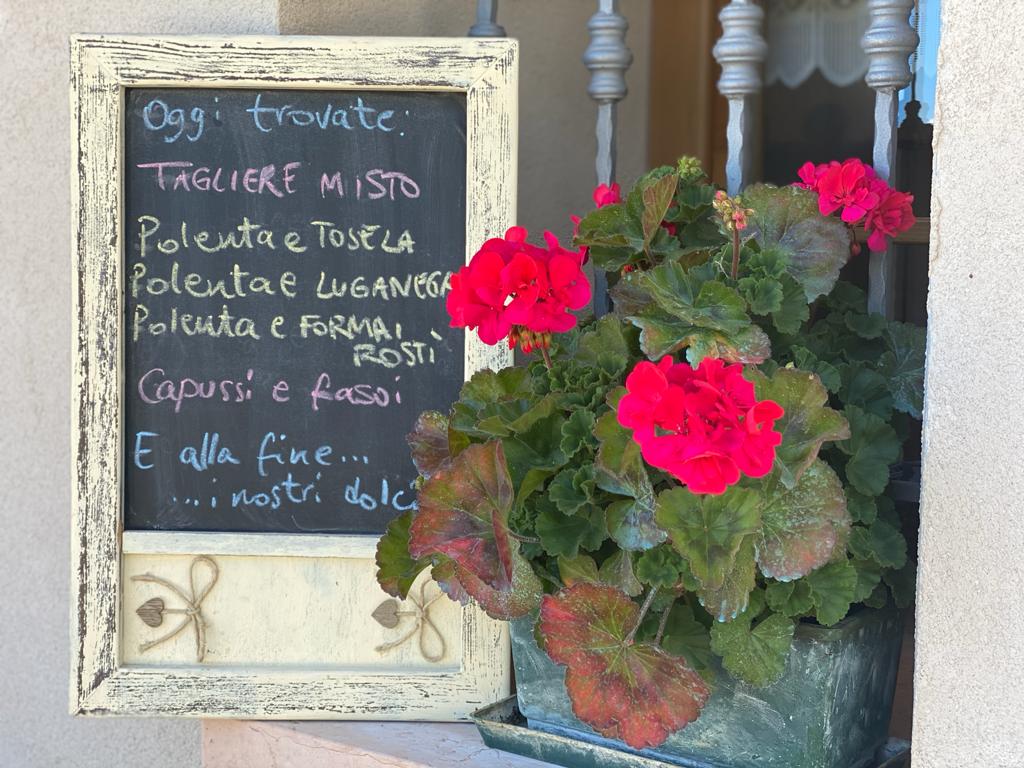 Oggi trovate:
TAGLIERE MISTO
Polenta e TOSELA
Polenta e LUGANEGA
Polenta e FORMAI
ROSTÌ
Capussi e fasoi
E alla fine...
...i nostri dolci